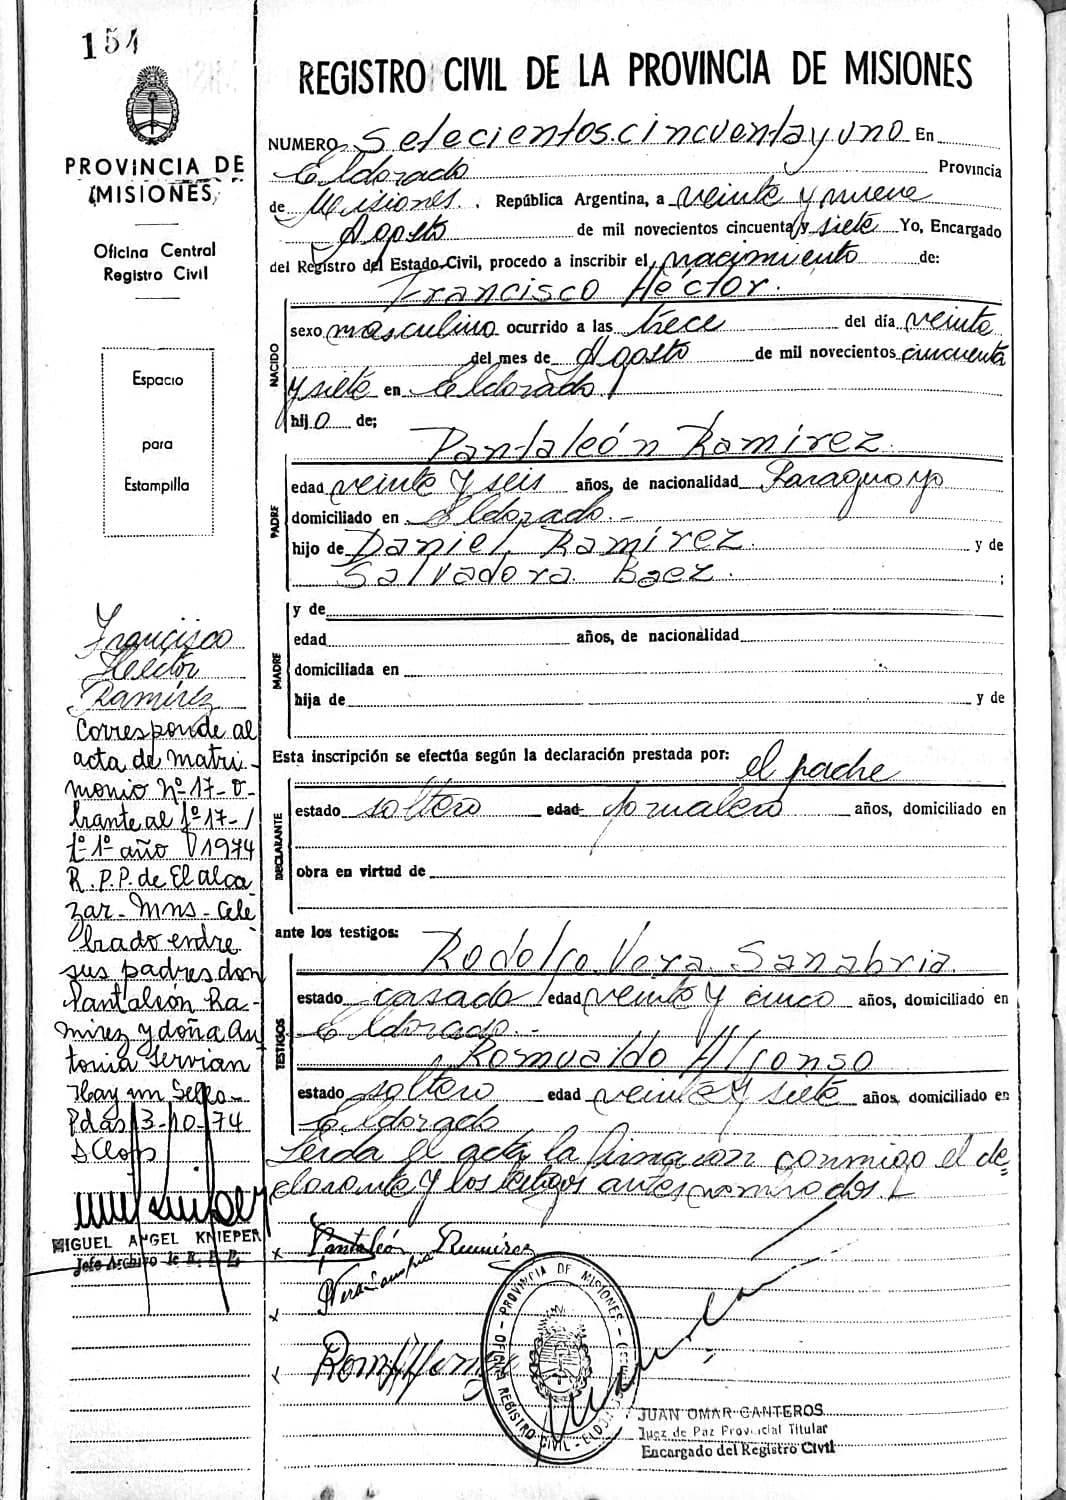 154
PROVINCIA DE
MISIONES
Oficina Central
Registro Civil
Espacio
para
Estampilla
Francisco
Héctor
Ramírez
Corresponde al
acta de matri-
monio Nº 17-o-
brante al fº 17-/
tº 1º año 1974
R.P.P. de El alca
zar-Mns-Cele
brado entre
sus padres don
Pantaleón Ra-
mirez y doña An
tonia Servian
Hay un Sello-
Pdas 3-10-74
MIGUEL ANGEL KNIEPER
Jefe Archivo de R. P. P.
REGISTRO CIVIL DE LA PROVINCIA DE MISIONES
NUMERO Setecientos cincuenta y uno En
Eldorado Provincia
de Misiones. República Argentina, a veinte y nueve
Agosto de mil novecientos cincuenta y siete Yo, Encargado
del Registro del Estado Civil, procedo a inscribir el nacimiento de:
Francisco Héctor.
NACIDO
sexo masculino ocurrido a las trece del día veinte
del mes de Agosto de mil novecientos cincuenta
y siete en Eldorado
hijo de;
Pantaleón Ramírez.
PADRE
edad veinte y seis años, de nacionalidad Paraguayo
domiciliado en Eldorado.-
hijo de Daniel Ramírez. y de
Salvadora Baez. ;
MADRE
y de
edad años, de nacionalidad
domiciliada en
hija de y de
Esta inscripción se efectúa según la declaración prestada por: el padre
DECLARANTE
estado soltero edad jornalero años, domiciliado en
obra en virtud de
ante los testigos:
Rodolfo Vera Sanabria.
TESTIGOS
estado casado edad veinte y cinco años, domiciliado en
Eldorado.-
Romualdo Alfonso
estado soltero edad veinte y siete años, domiciliado en
Eldorado
Leida el acta la firman conmigo el de=
clarante y los testigos antes nombrados.
x Pantaleón Ramírez
PROVINCIA DE MISIONES - OFICINA REGISTRO CIVIL - ELDORADO
JUAN OMAR CANTEROS
Juez de Paz Provincial Titular
Encargado del Registro Civil